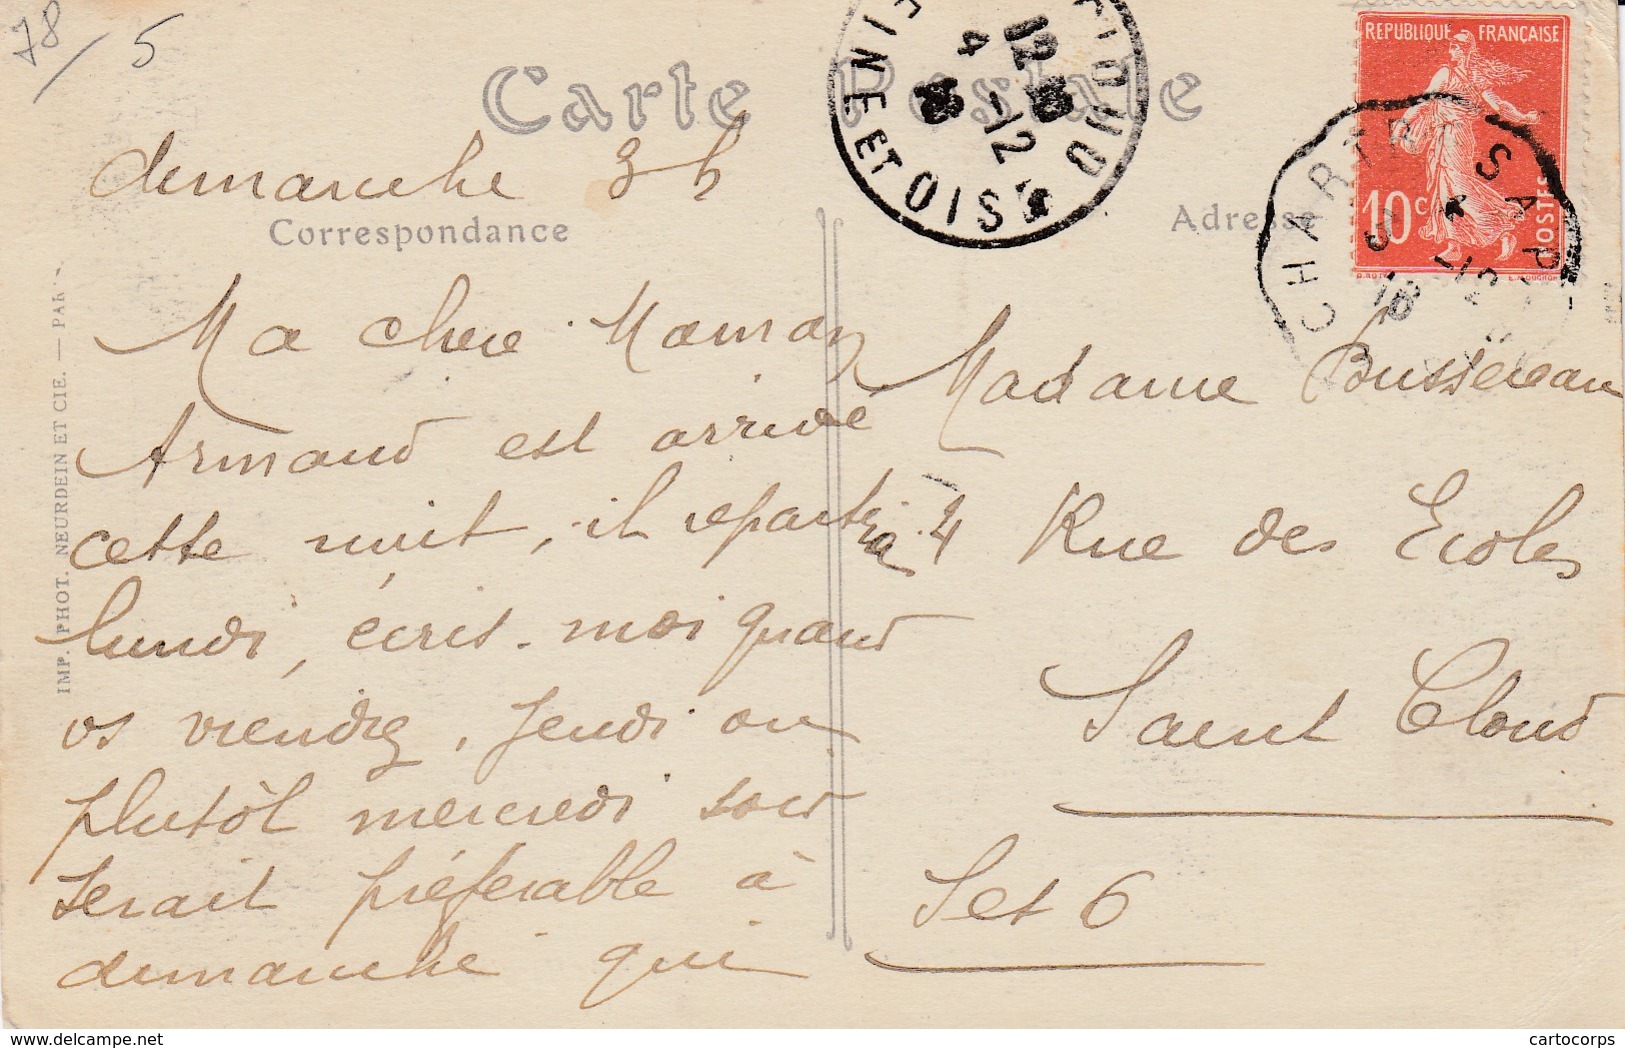 78/5
Carte Postale
dimanche 3 h
Correspondance
Ma chere Maman
Armand est arrivé
cette nuit, il repartira
lundi, écris-moi quand
vs viendrez, Jeudi ou
plutôt mercredi soir
serait préférable à
dimanche qui
IMP. PHOT. NEURDEIN ET CIE. — PAR
12
4 -12
SEINE ET OISE
Adresse
REPUBLIQUE FRANÇAISE
10c
POSTES
CHARTRES A PA
3 -12
16
Madame Bussereau
4 Rue des Ecoles
Saint Cloud
S et O
cartocorps